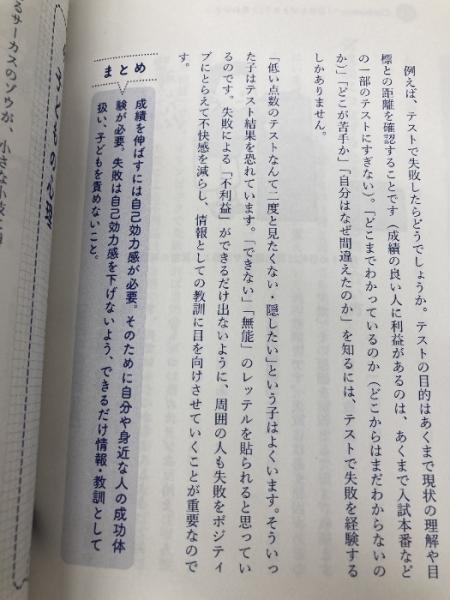 例えば、テストで失敗したらどうでしょうか。テストの目的はあくまで現状の理解や目
標との距離を確認することです（成績の良い人に利益があるのは、あくまで入試本番など
の一部のテストにすぎない）。「どこまでわかっているのか（どこからはまだわからないの
か）」「どこが苦手か」「自分はなぜ間違えたのか」を知るには、テストで失敗を経験する
しかありません。
「低い点数のテストなんて二度と見たくない・隠したい」という子はよくいます。そういっ
た子はテスト結果を恐れています。「できない」「無能」のレッテルを貼られると思ってい
るのです。失敗による「不利益」ができるだけ出ないように、周囲の人も失敗をポジティ
ブにとらえて不快感を減らし、情報としての教訓に目を向けさせていくことが重要なので
す。
まとめ
成績を伸ばすには自己効力感が必要。そのために自分や身近な人の成功体
験が必要。失敗は自己効力感を下げないよう、できるだけ情報・教訓として
扱い、子どもを責めないこと。
るサーカスのゾウが、小さな